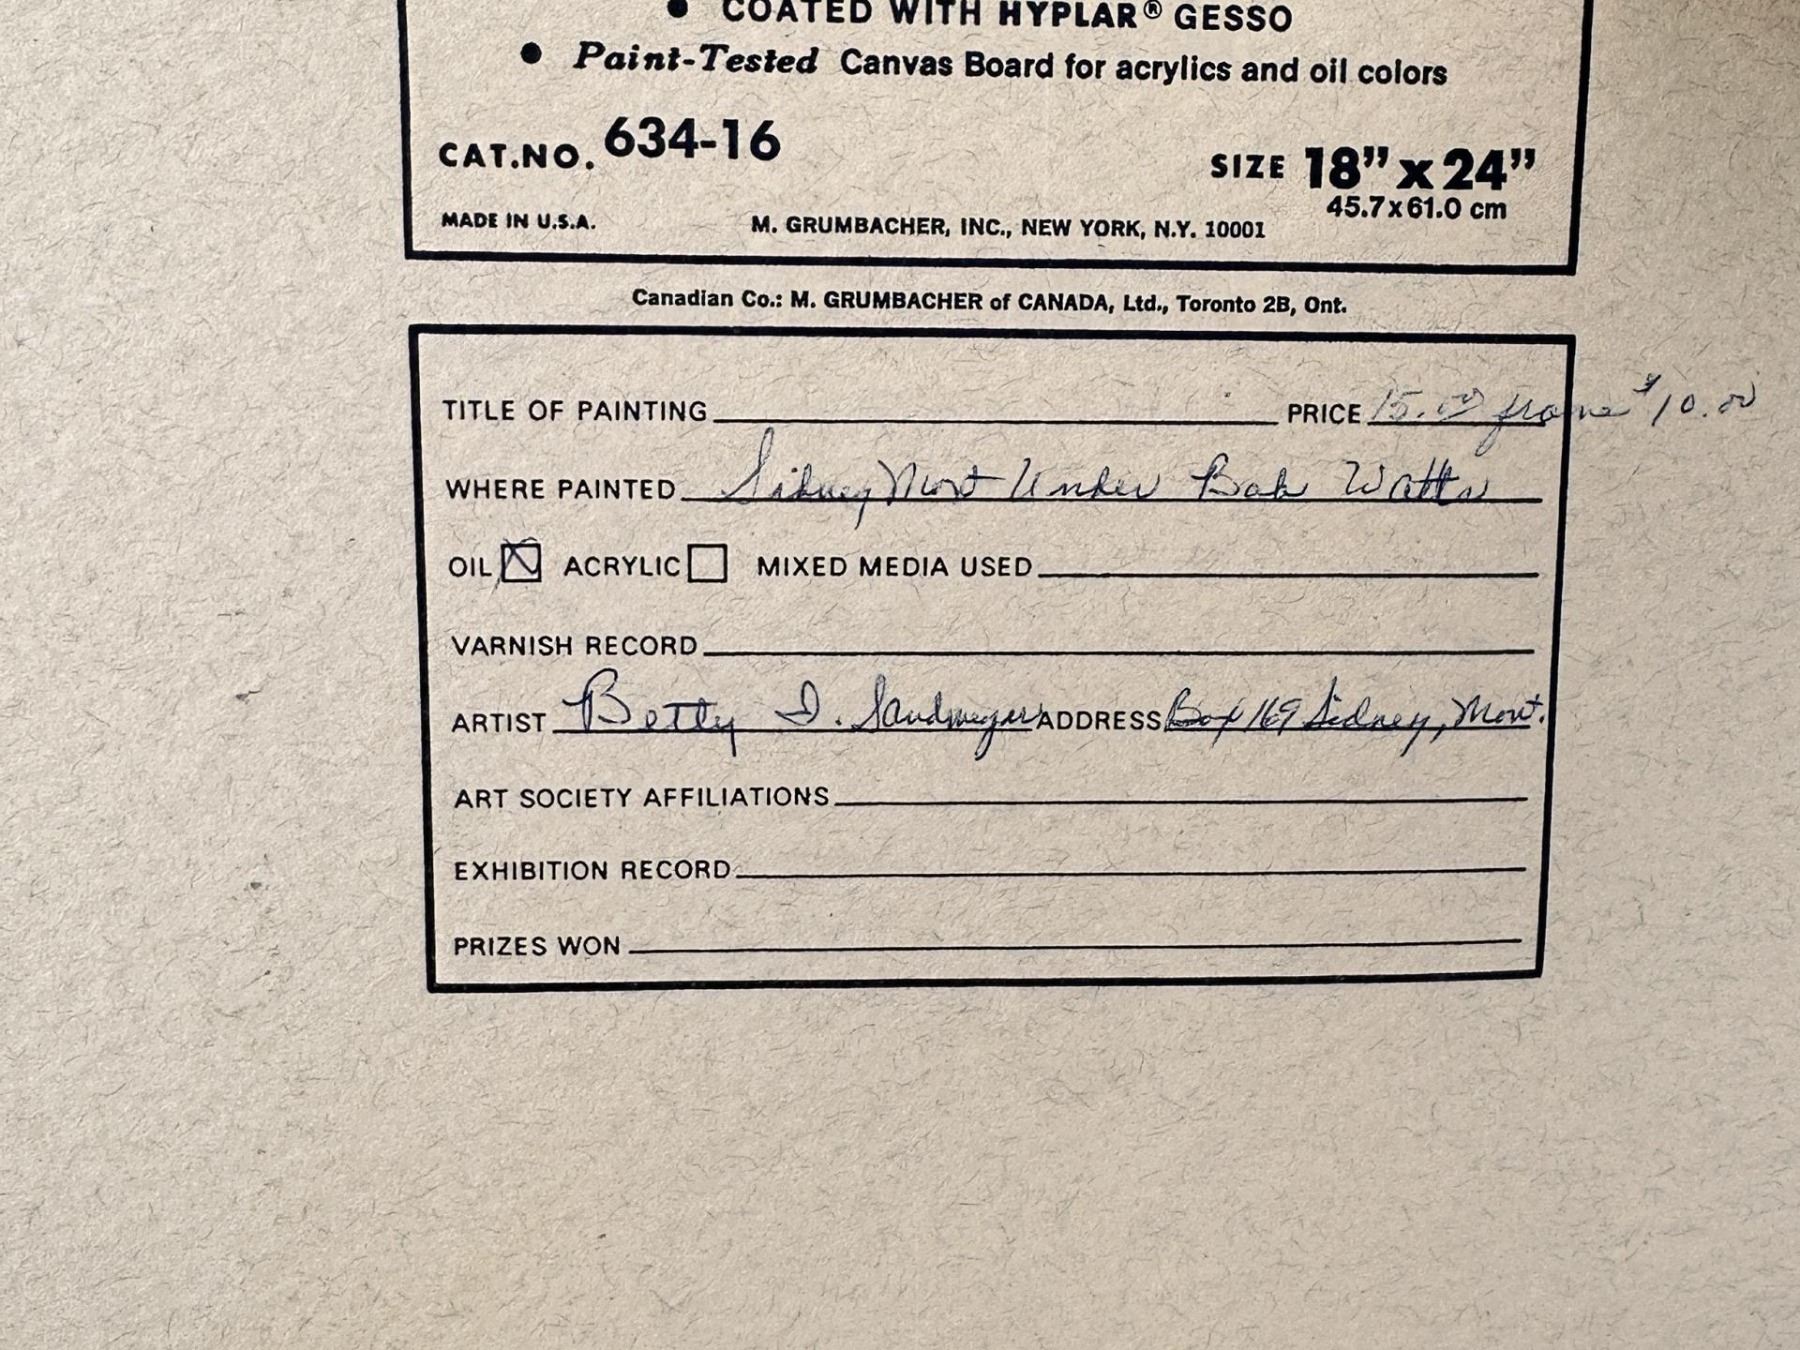 • COATED WITH HYPLAR® GESSO
• Paint-Tested Canvas Board for acrylics and oil colors
CAT.NO. 634-16
SIZE 18" x 24"
45.7x61.0 cm
MADE IN U.S.A. M. GRUMBACHER, INC., NEW YORK, N.Y. 10001
Canadian Co.: M. GRUMBACHER of CANADA, Ltd., Toronto 2B, Ont.
TITLE OF PAINTING PRICE 15.00 frame $10.00
WHERE PAINTED Sidney Mont Under Bob Watts
OIL ACRYLIC MIXED MEDIA USED
VARNISH RECORD
ARTIST Betty I. ADDRESS Box 169 Sidney, Mont.
ART SOCIETY AFFILIATIONS
EXHIBITION RECORD
PRIZES WON